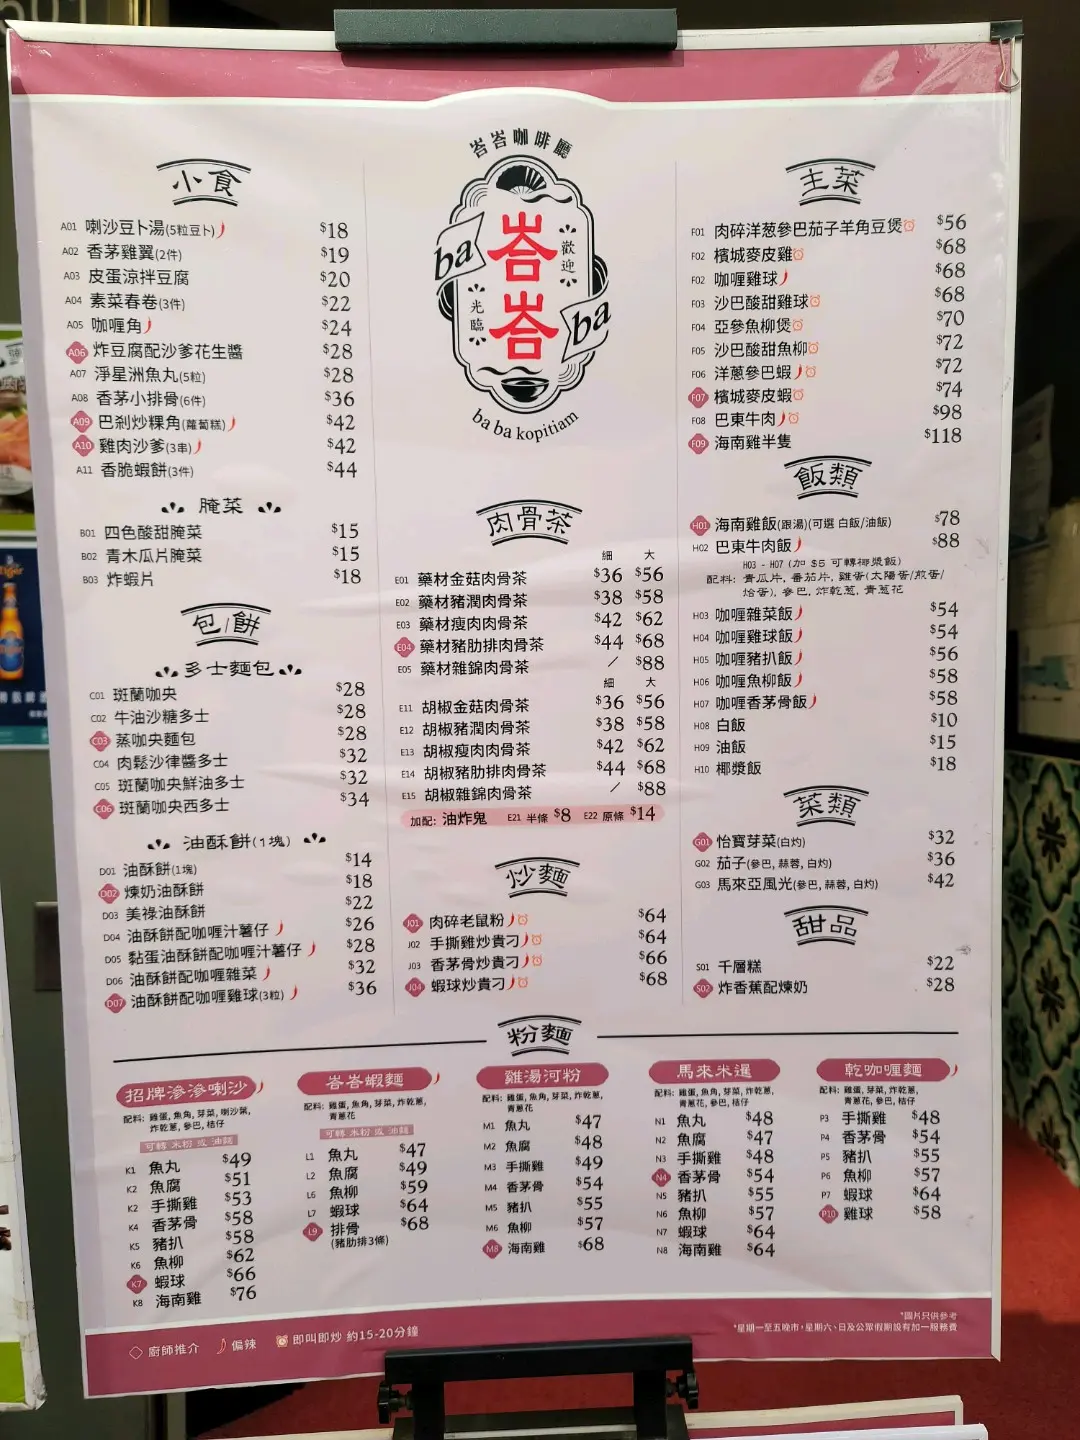 峇峇咖啡廳
ba
峇峇
ba
歡迎
光臨
ba ba kopitiam
小食
A01 喇沙豆卜湯(5粒豆卜) $18
A02 香茅雞翼(2件) $19
A03 皮蛋涼拌豆腐 $20
A04 素菜春卷(3件) $22
A05 咖喱角 $24
A06 炸豆腐配沙爹花生醬 $28
A07 淨星洲魚丸(5粒) $28
A08 香茅小排骨(6件) $36
A09 巴剎炒粿角(蘿蔔糕) $42
A10 雞肉沙爹(3串) $42
A11 香脆蝦餅(3件) $44
腌菜
B01 四色酸甜腌菜 $15
B02 青木瓜片腌菜 $15
B03 炸蝦片 $18
包/餅
多士麵包
C01 斑蘭咖央 $28
C02 牛油沙糖多士 $28
C03 蒸咖央麵包 $28
C04 肉鬆沙律醬多士 $32
C05 斑蘭咖央鮮油多士 $32
C06 斑蘭咖央西多士 $34
油酥餅(1塊)
D01 油酥餅(1塊) $14
D02 煉奶油酥餅 $18
D03 美祿油酥餅 $22
D04 油酥餅配咖喱汁薯仔 $26
D05 黏蛋油酥餅配咖喱汁薯仔 $28
D06 油酥餅配咖喱雜菜 $32
D07 油酥餅配咖喱雞球(3粒) $36
肉骨茶
細 大
E01 藥材金菇肉骨茶 $36 $56
E02 藥材豬潤肉骨茶 $38 $58
E03 藥材瘦肉肉骨茶 $42 $62
E04 藥材豬肋排肉骨茶 $44 $68
E05 藥材雜錦肉骨茶 / $88
細 大
E11 胡椒金菇肉骨茶 $36 $56
E12 胡椒豬潤肉骨茶 $38 $58
E13 胡椒瘦肉肉骨茶 $42 $62
E14 胡椒豬肋排肉骨茶 $44 $68
E15 胡椒雜錦肉骨茶 / $88
加配: 油炸鬼 E21 半條 $8 E22 原條 $14
炒麵
J01 肉碎老鼠粉 $64
J02 手撕雞炒貴刁 $64
J03 香茅骨炒貴刁 $66
J04 蝦球炒貴刁 $68
主菜
F01 肉碎洋葱參巴茄子羊角豆煲 $56
F02 檳城麥皮雞 $68
F02 咖喱雞球 $68
F03 沙巴酸甜雞球 $68
F04 亞參魚柳煲 $70
F05 沙巴酸甜魚柳 $72
F06 洋蔥參巴蝦 $72
F07 檳城麥皮蝦 $74
F08 巴東牛肉 $98
F09 海南雞半隻 $118
飯類
H01 海南雞飯(跟湯)(可選 白飯/油飯) $78
H02 巴東牛肉飯 $88
H03 - H07 (加 $5 可轉椰漿飯)
配料: 青瓜片, 番茄片, 雞蛋(太陽蛋/煎蛋/
烚蛋), 參巴, 炸乾蔥, 青蔥花
H03 咖喱雜菜飯 $54
H04 咖喱雞球飯 $54
H05 咖喱豬扒飯 $56
H06 咖喱魚柳飯 $58
H07 咖喱香茅骨飯 $58
H08 白飯 $10
H09 油飯 $15
H10 椰漿飯 $18
菜類
G01 怡寶芽菜(白灼) $32
G02 茄子(參巴, 蒜蓉, 白灼) $36
G03 馬來亞風光(參巴, 蒜蓉, 白灼) $42
甜品
S01 千層糕 $22
S02 炸香蕉配煉奶 $28
粉麵
招牌滲滲喇沙
配料: 雞蛋, 魚角, 芽菜, 喇沙葉,
炸乾蔥, 參巴, 桔仔
可轉 米粉 或 油麵
K1 魚丸 $49
K2 魚腐 $51
K2 手撕雞 $53
K4 香茅骨 $58
K5 豬扒 $58
K6 魚柳 $62
K7 蝦球 $66
K8 海南雞 $76
峇峇蝦麵
配料: 雞蛋, 魚角, 芽菜, 炸乾蔥,
青蔥花
可轉 米粉 或 油麵
L1 魚丸 $47
L2 魚腐 $49
L6 魚柳 $59
L7 蝦球 $64
L9 排骨 $68
(豬肋排3條)
雞湯河粉
配料: 雞蛋, 魚角, 芽菜, 炸乾蔥,
青蔥花
M1 魚丸 $47
M2 魚腐 $48
M3 手撕雞 $49
M4 香茅骨 $54
M5 豬扒 $55
M6 魚柳 $57
M8 海南雞 $68
馬來米暹
配料: 雞蛋, 魚角, 芽菜, 炸乾蔥,
青蔥花, 參巴, 桔仔
N1 魚丸 $48
N2 魚腐 $47
N3 手撕雞 $48
N4 香茅骨 $54
N5 豬扒 $55
N6 魚柳 $57
N7 蝦球 $64
N8 海南雞 $64
乾咖喱麵
配料: 雞蛋, 魚角, 芽菜, 炸乾蔥,
青蔥花, 參巴, 桔仔
P3 手撕雞 $48
P4 香茅骨 $54
P5 豬扒 $55
P6 魚柳 $57
P7 蝦球 $64
P10 雞球 $58
廚師推介 偏辣 即叫即炒 約15-20分鐘
*圖片只供參考
*星期一至五晚市，星期六、日及公眾假期設有加一服務費
Tiger